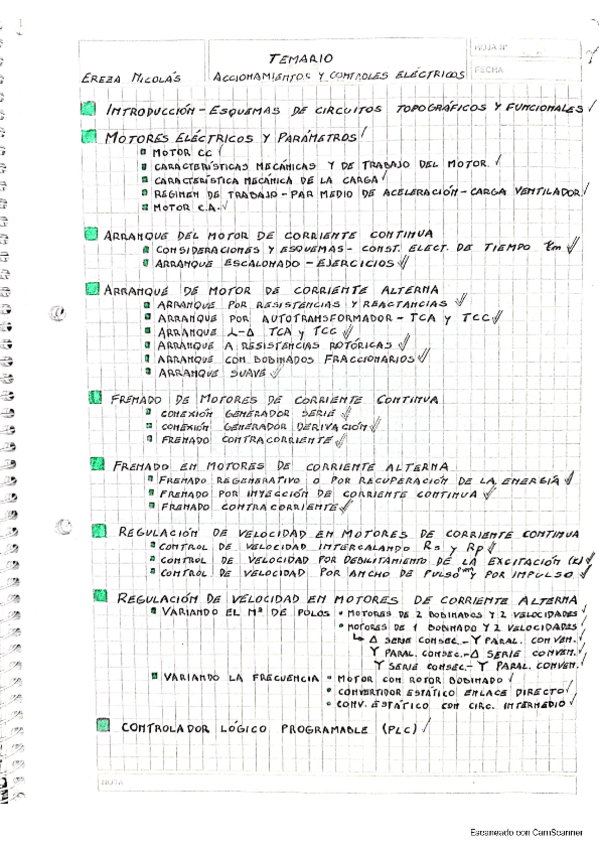 TEMARIO
HOJA Nº
EREZA NICOLÁS
ACCIONAMIENTOS Y CONTROLES ELÉCTRICOS
FECHA
INTRODUCCIÓN - ESQUEMAS DE CIRCUITOS TOPOGRÁFICOS Y FUNCIONALES
MOTORES ELÉCTRICOS Y PARÁMETROS
MOTOR CC
CARACTERÍSTICAS MECÁNICAS Y DE TRABAJO DEL MOTOR.
CARACTERÍSTICA MECÁNICA DE LA CARGA
RÉGIMEN DE TRABAJO - PAR MEDIO DE ACELERACIÓN - CARGA VENTILADOR
MOTOR C.A.
ARRANQUE DEL MOTOR DE CORRIENTE CONTINUA
CONSIDERACIONES Y ESQUEMAS - CONST. ELECT. DE TIEMPO
ARRANQUE ESCALONADO - EJERCICIOS
ARRANQUE DE MOTOR DE CORRIENTE ALTERNA
ARRANQUE POR RESISTENCIAS Y REACTANCIAS
ARRANQUE POR AUTOTRANSFORMADOR - TCA Y TCC
ARRANQUE ⅄-Δ TCA Y TCC
ARRANQUE A RESISTENCIAS ROTÓRICAS
ARRANQUE CON BOBINADOS FRACCIONARIOS
ARRANQUE SUAVE
FRENADO DE MOTORES DE CORRIENTE CONTINUA
CONEXIÓN GENERADOR SERIE
CONEXIÓN GENERADOR DERIVACIÓN
FRENADO CONTRACORRIENTE
FRENADO EN MOTORES DE CORRIENTE ALTERNA
FRENADO REGENERATIVO O POR RECUPERACIÓN DE LA ENERGÍA
FRENADO POR INYECCIÓN DE CORRIENTE CONTINUA
FRENADO CONTRACORRIENTE
REGULACIÓN DE VELOCIDAD EN MOTORES DE CORRIENTE CONTINUA
CONTROL DE VELOCIDAD INTERCALANDO Rs Y Rp
CONTROL DE VELOCIDAD POR DEBILITAMIENTO DE LA EXCITACIÓN
CONTROL DE VELOCIDAD POR ANCHO DE PULSO PWM Y POR IMPULSO
REGULACIÓN DE VELOCIDAD EN MOTORES DE CORRIENTE ALTERNA
VARIANDO EL Nº DE POLOS • MOTORES DE 2 BOBINADOS Y 2 VELOCIDADES
• MOTORES DE 1 BOBINADO Y 2 VELOCIDADES
↳ Δ SERIE CONSEC. - Y PARAL. CONVEN.
Y PARAL. CONSEC. - Δ SERIE CONVEN.
Y SERIE CONSEC. - Y PARAL. CONVEN.
VARIANDO LA FRECUENCIA • MOTOR CON ROTOR BOBINADO
• CONVERTIDOR ESTÁTICO ENLACE DIRECTO
• CONV. ESTÁTICO CON CIRC. INTERMEDIO
CONTROLADOR LÓGICO PROGRAMABLE (PLC)
NOTA
Escaneado con CamScanner